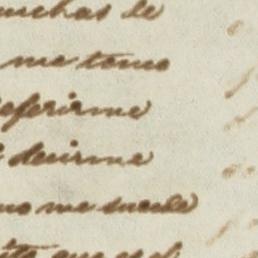 muchas de
me tomo
referirme
decirme
no me sucede
que